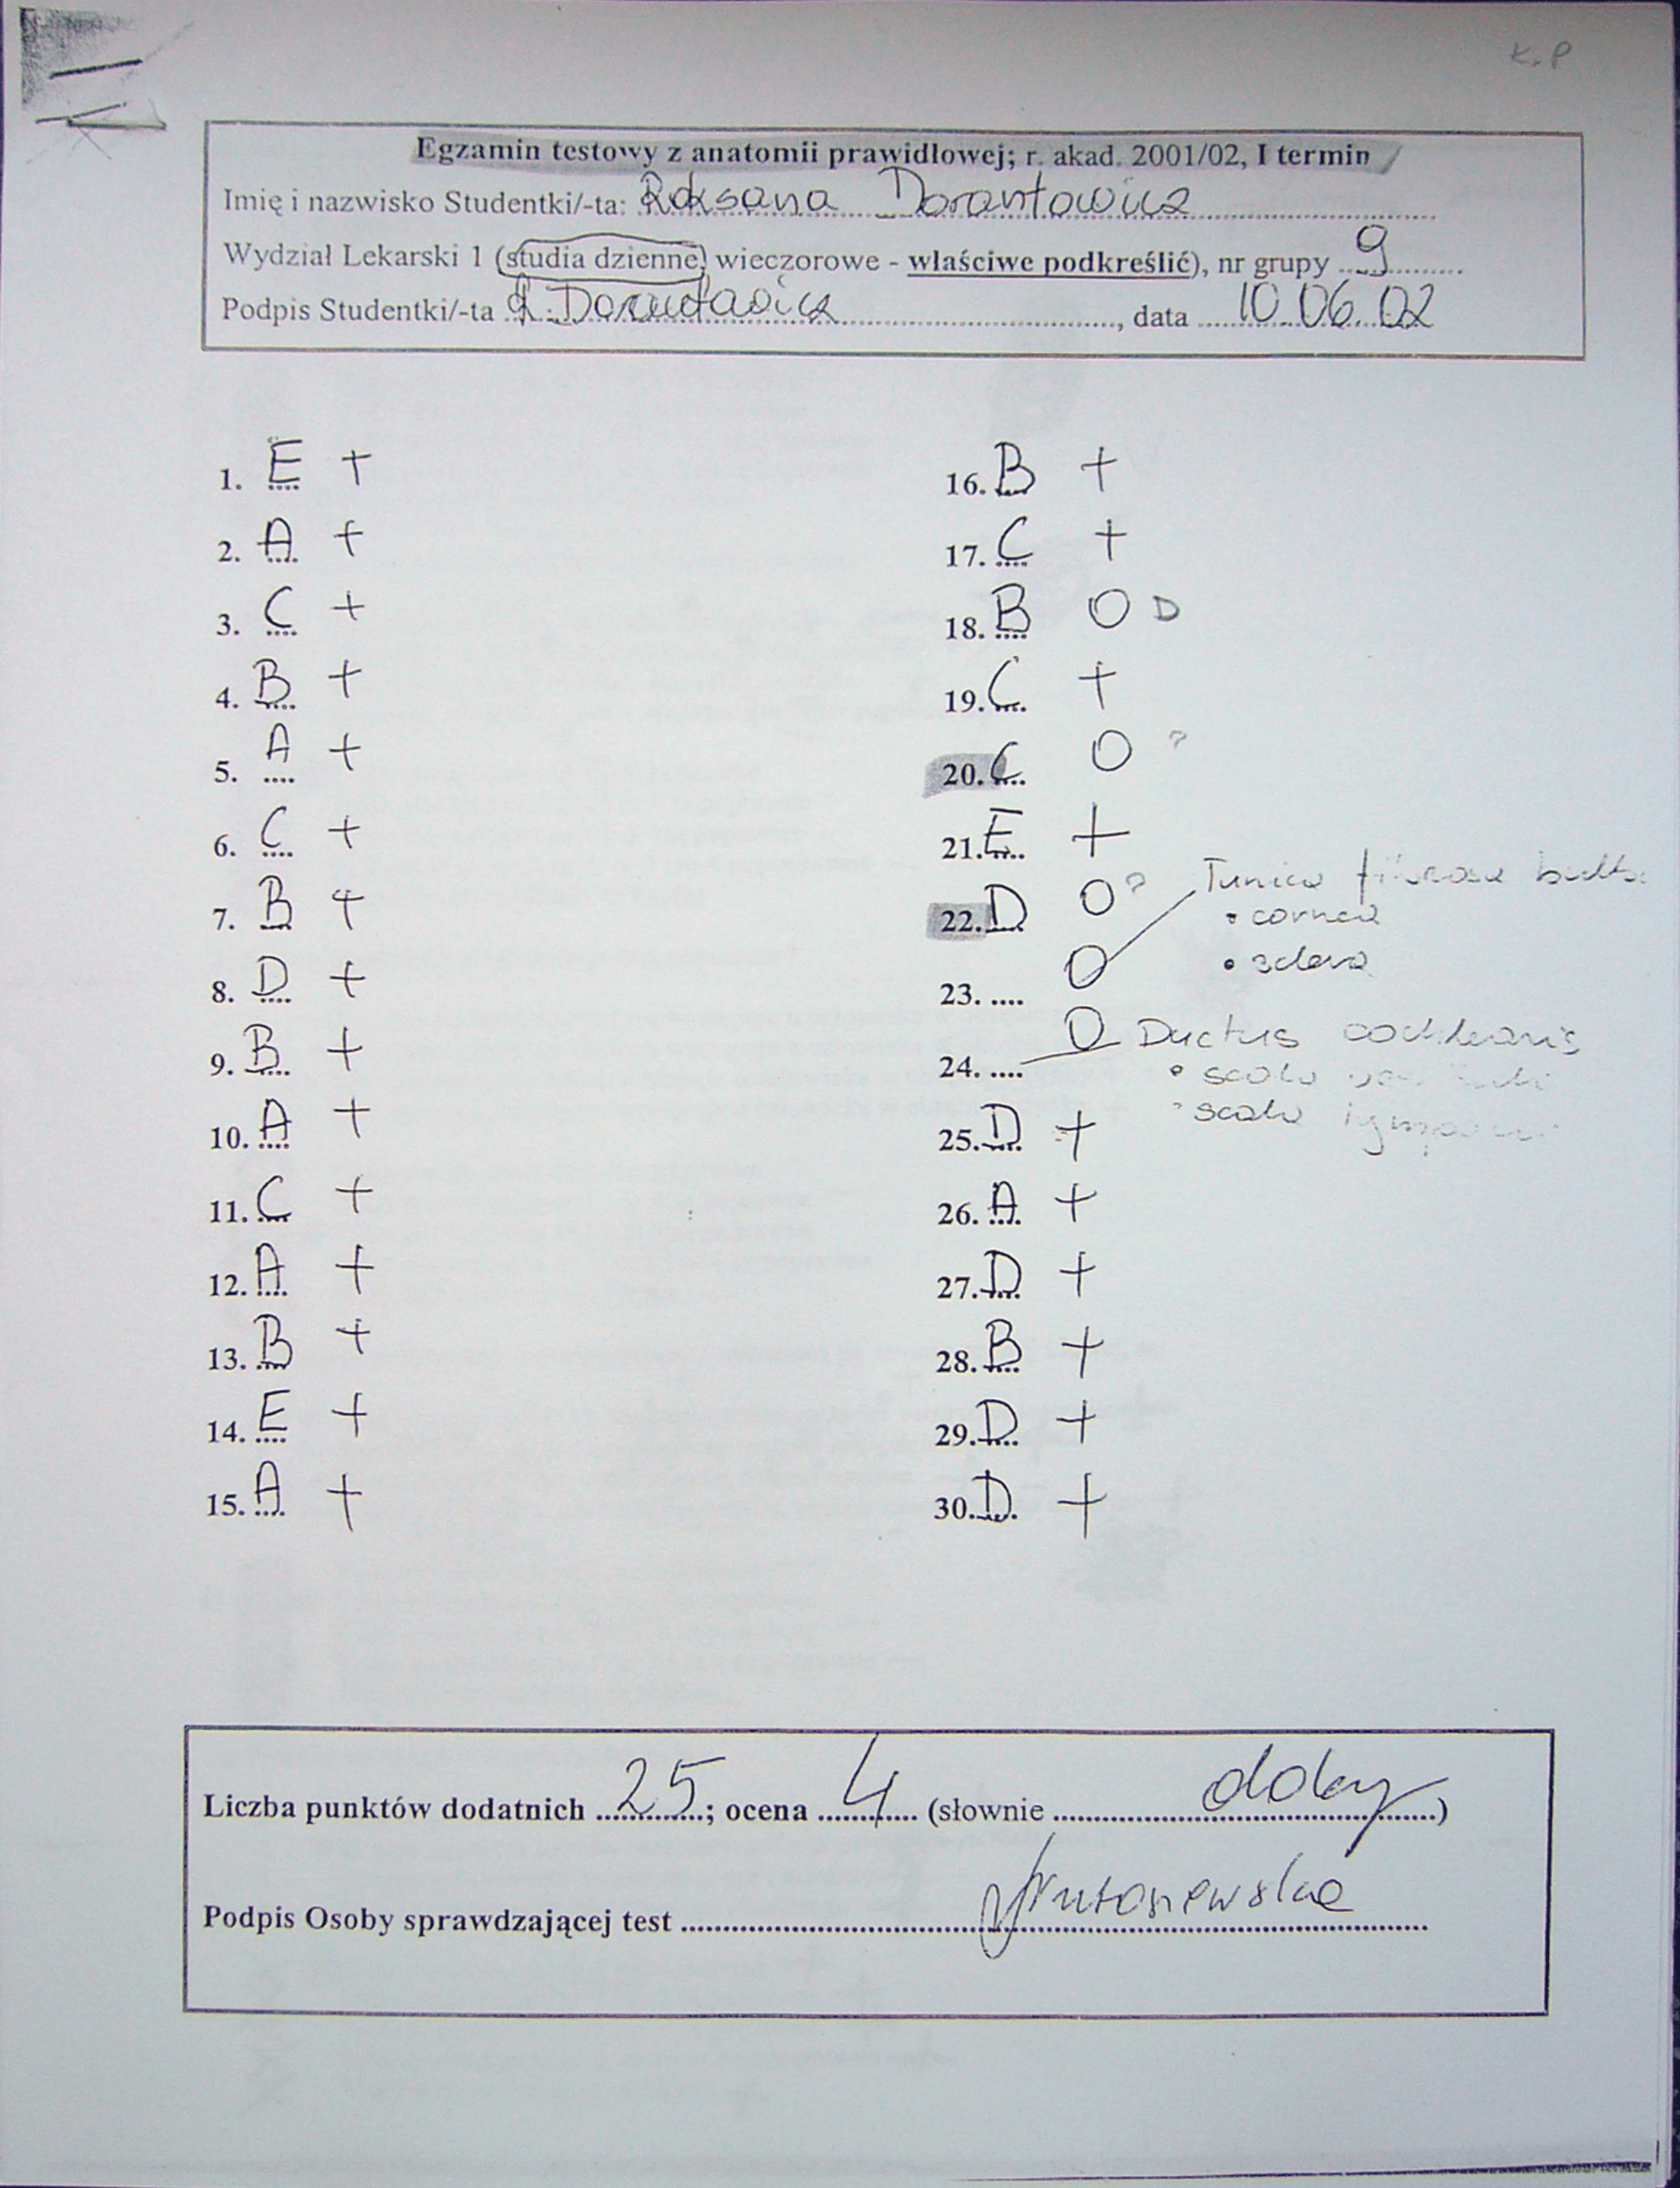 K.P
Egzamin testowy z anatomii prawidłowej; r. akad. 2001/02, I termin
Imię i nazwisko Studentki/-ta: Roksana Dorantowicz
Wydział Lekarski I (studia dzienne, wieczorowe - właściwe podkreślić), nr grupy 9
Podpis Studentki/-ta R. Dorantowicz, data 10.06.02
1. E +
2. A +
3. C +
4. B +
5. A +
6. C +
7. B +
8. D +
9. B +
10. A +
11. C +
12. A +
13. B +
14. E +
15. A +
16. B +
17. C +
18. B O D
19. C +
20. C O ?
21. E +
22. D O ?
23. .... O Tunica fibrosa bulbi
• cornea
• sclera
24. .... O Ductus cochlearis
• scala
• scala tympani
25. D +
26. A +
27. D +
28. B +
29. D +
30. D +
Liczba punktów dodatnich 25; ocena 4 (słownie dobry)
Podpis Osoby sprawdzającej test